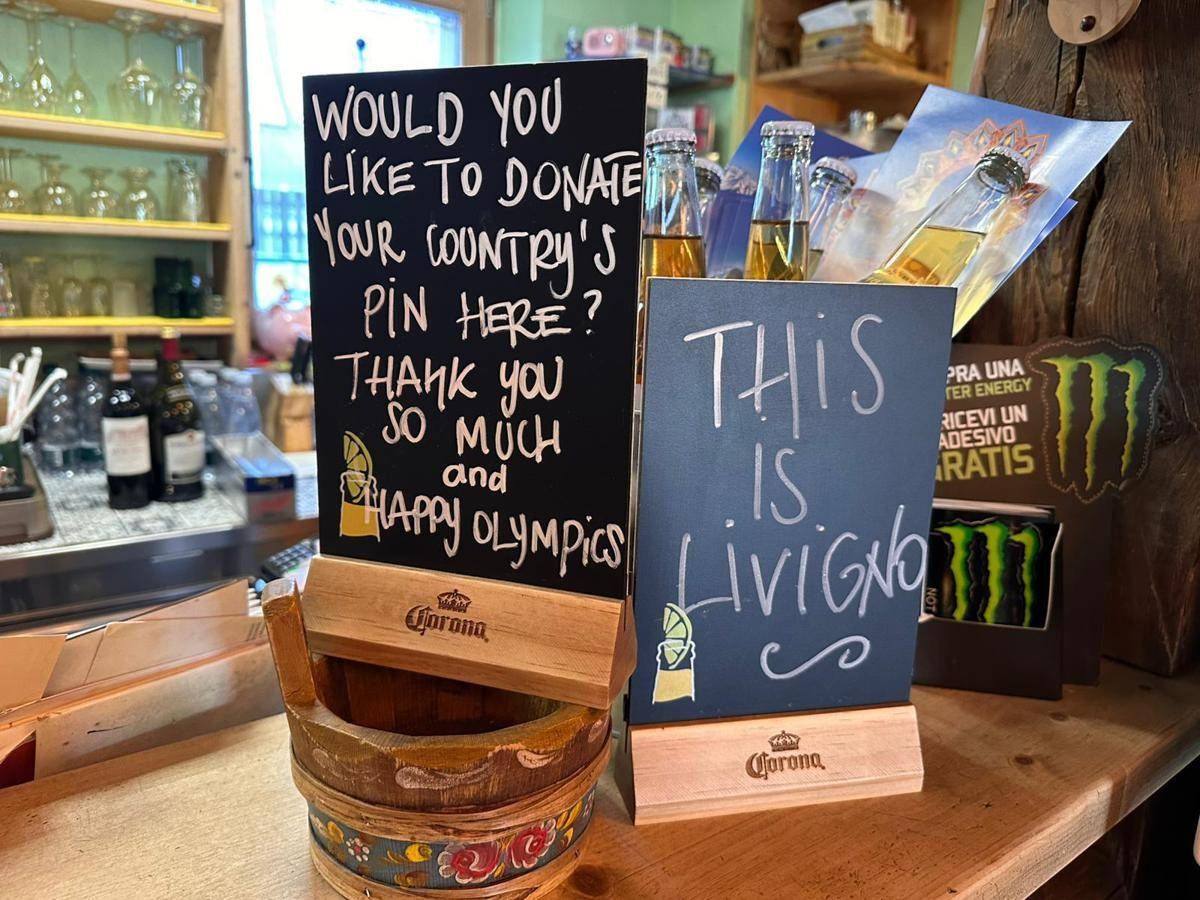 WOULD YOU
LIKE TO DONATE
YOUR COUNTRY'S
PIN HERE?
THANK YOU
SO MUCH
and
HAPPY OLYMPICS
Corona
THiS
iS
LiViGNO
Corona
PRA UNA
TER ENERGY
RICEVI UN
ADESIVO
GRATIS
NOT